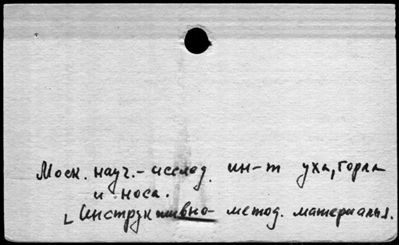 Моск. науч.-исслед. ин-т уха, горла
и носа.
Инструктивно-метод. материалы.